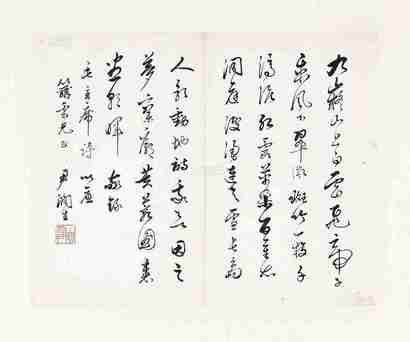 九嶷山上白雲飛帝子
乘風下翠微斑竹一枝千
滴淚紅雲萬朵百重衣
洞庭波湧連天雪長島
人歌動地詩我欲因之
夢寥廓芙蓉國裏
盡朝暉 敬錄
毛主席詩以應
雲兄正 尹潤生